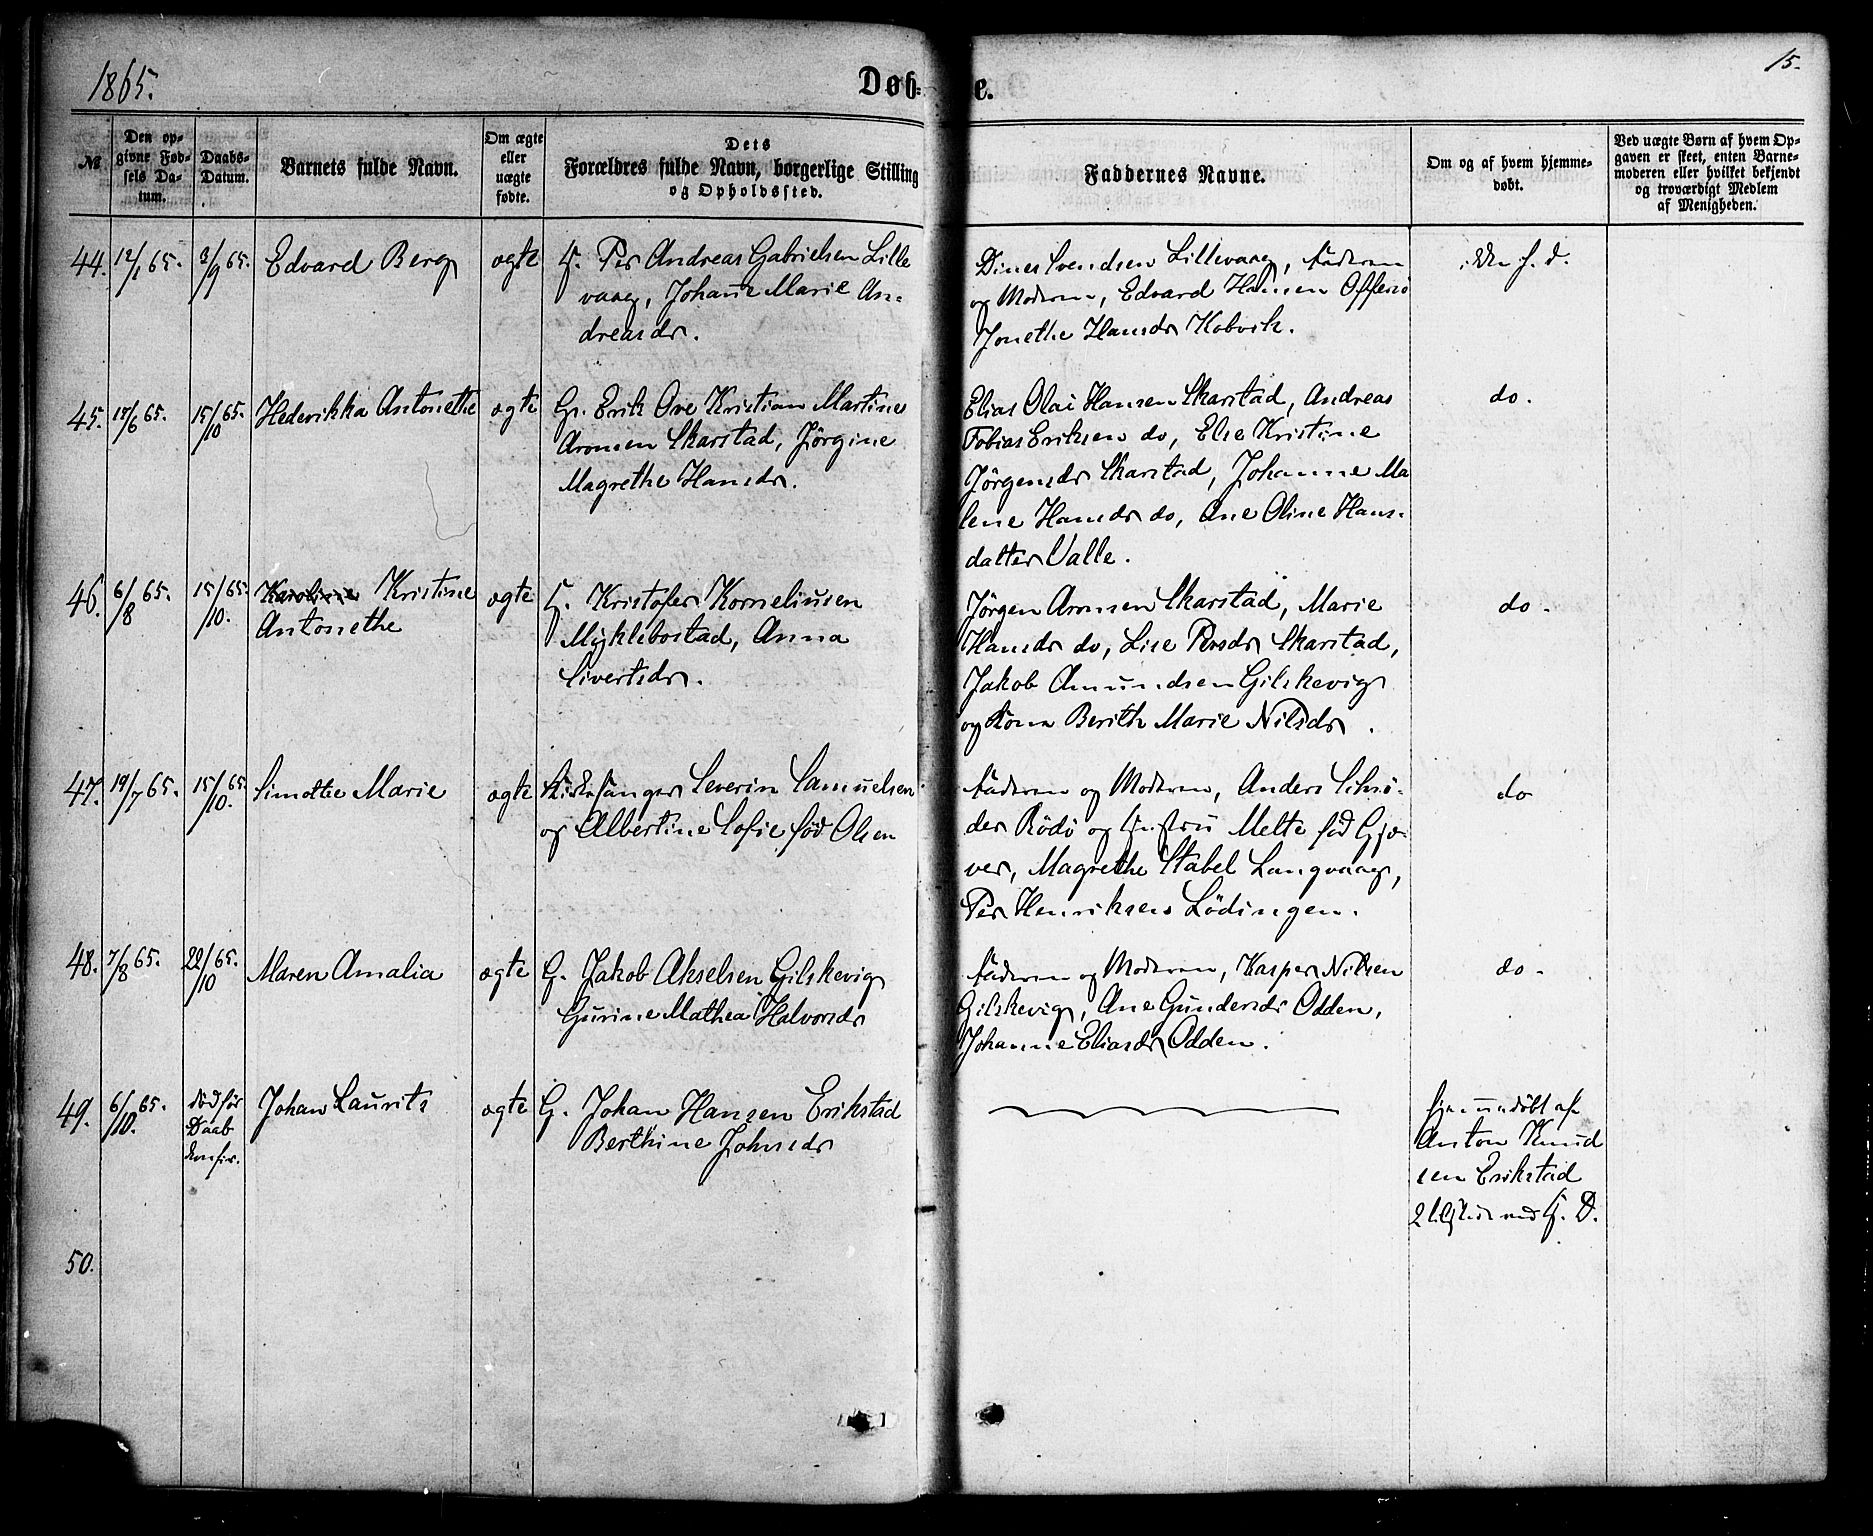 1865.
Døb=
e.
15.
№
Den op-
givne Fød-
sels Da-
tum.
Daabs-
Datum.
Barnets fulde Navn.
Om ægte
eller
uægte
fødte.
Dets
Forældres fulde Navn, borgerlige Stilling
og Opholdssted.
Faddernes Navne.
Om og af hvem hjemme-
døbt.
Ved uægte Børn af hvem Op-
gaven er skeet, enten Barne-
moderen eller hvilket bekjendt
og troværdigt Medlem
af Menigheden.
44. 12/1 65. 3/9 65. Edvard Berg ægte
G. Per Andreas Gabrielsen Lille
vaag, Johanne Marie An-
dreasdr.
Dines Svendsen Lillevaag, Faderen
og Moderen, Edvard Hansen Offersö
Jonethe Hansdr Kobvik.
45. 17/6 65. 15/10 65. Hederikka Antonethe ægte
G. Erik Ove Kristian Martines
Aronsen Skarstad, Jørgine
Magrethe Hansdr.
Elias Olai Hansen Skarstad, Andreas
Tobias Eriksen do, Else Kristine
Jörgensdr Skarstad, Johanne Ma
lene Hansdr do, Ane Oline Hans-
datter Valle.
do.
46. 6/8 65. 15/10 65. Karoline Kristine
Antonethe
ægte
G. Kristofer Korneliusen
Myklebostad, Anna
Sivertsdr.
Jörgen Aronsen Skarstad, Marie
Hansdr do, Lise Persdr Skarstad,
Jakob Amundsen Gilskevig
og Kona Berith Marie Nilsdr.
do.
47. 19/7 65. 15/10 65. Simothe Marie ægte
Kirkesanger Severin Samuelsen
og Albertine Sofie fød Olsen
Faderen og Moderen, Anders Schrö-
der Rödö og Hustru Melte fød Gjæ-
ver, Magrethe Stabel Langvaag,
Per Henriksen Lödingen.
do
48. 7/8 65. 22/10 65. Maren Amalia ægte
G. Jakob Akselsen Gilskevig
Gurine Mathea Halvorsdr
Faderen og Moderen, Kasper Nilsen
Gilskevig, Ane Gundersdr Odden,
Johanne Eliasdr Odden.
do.
49. 6/10 65. död för
Daab
Johan Laurits ægte
G. Johan Hansen Erikstad
Berthine Johnsdr
hjemmedöbt af
Anton Knud
sen Erikstad
50.